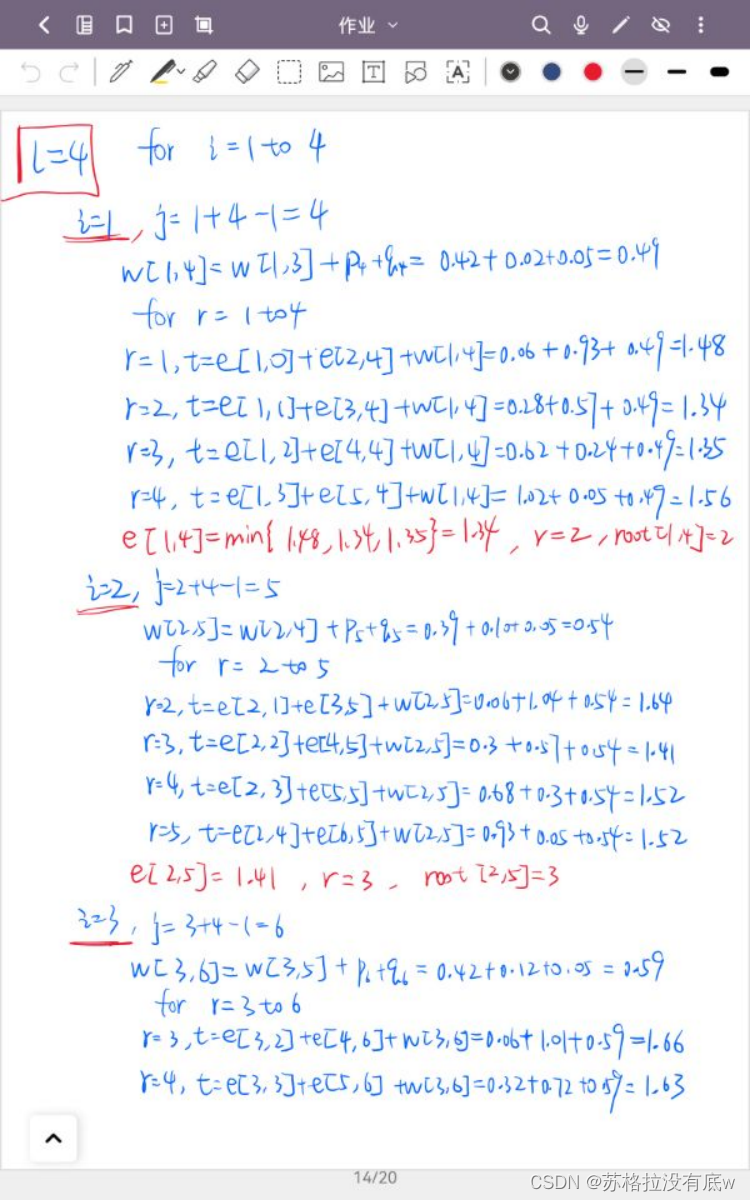 作业
T
A
l=4 for i=1 to 4
i=1, j=1+4-1=4
w[1,4]=w[1,3]+p4+q4= 0.42+0.02+0.05=0.49
for r= 1 to 4
r=1, t=e[1,0]+e[2,4]+w[1,4]=0.06+0.93+0.49=1.48
r=2, t=e[1,1]+e[3,4]+w[1,4]=0.28+0.57+0.49=1.34
r=3, t=e[1,2]+e[4,4]+w[1,4]=0.62+0.24+0.49=1.35
r=4, t=e[1,3]+e[5,4]+w[1,4]=1.02+0.05+0.49=1.56
e[1,4]=min{1.48,1.34,1.35}=1.34, r=2, root[1,4]=2
i=2, j=2+4-1=5
w[2,5]=w[2,4]+p5+q5=0.39+0.10+0.05=0.54
for r= 2 to 5
r=2, t=e[2,1]+e[3,5]+w[2,5]=0.06+1.04+0.54=1.64
r=3, t=e[2,2]+e[4,5]+w[2,5]=0.3+0.57+0.54=1.41
r=4, t=e[2,3]+e[5,5]+w[2,5]=0.68+0.3+0.54=1.52
r=5, t=e[2,4]+e[6,5]+w[2,5]=0.93+0.05+0.54=1.52
e[2,5]=1.41, r=3, root[2,5]=3
i=3, j=3+4-1=6
w[3,6]=w[3,5]+p6+q6=0.42+0.12+0.05=0.59
for r=3 to 6
r=3, t=e[3,2]+e[4,6]+w[3,6]=0.06+1.01+0.59=1.66
r=4, t=e[3,3]+e[5,6]+w[3,6]=0.32+0.72+0.59=1.63
14/20
CSDN @苏格拉没有底w